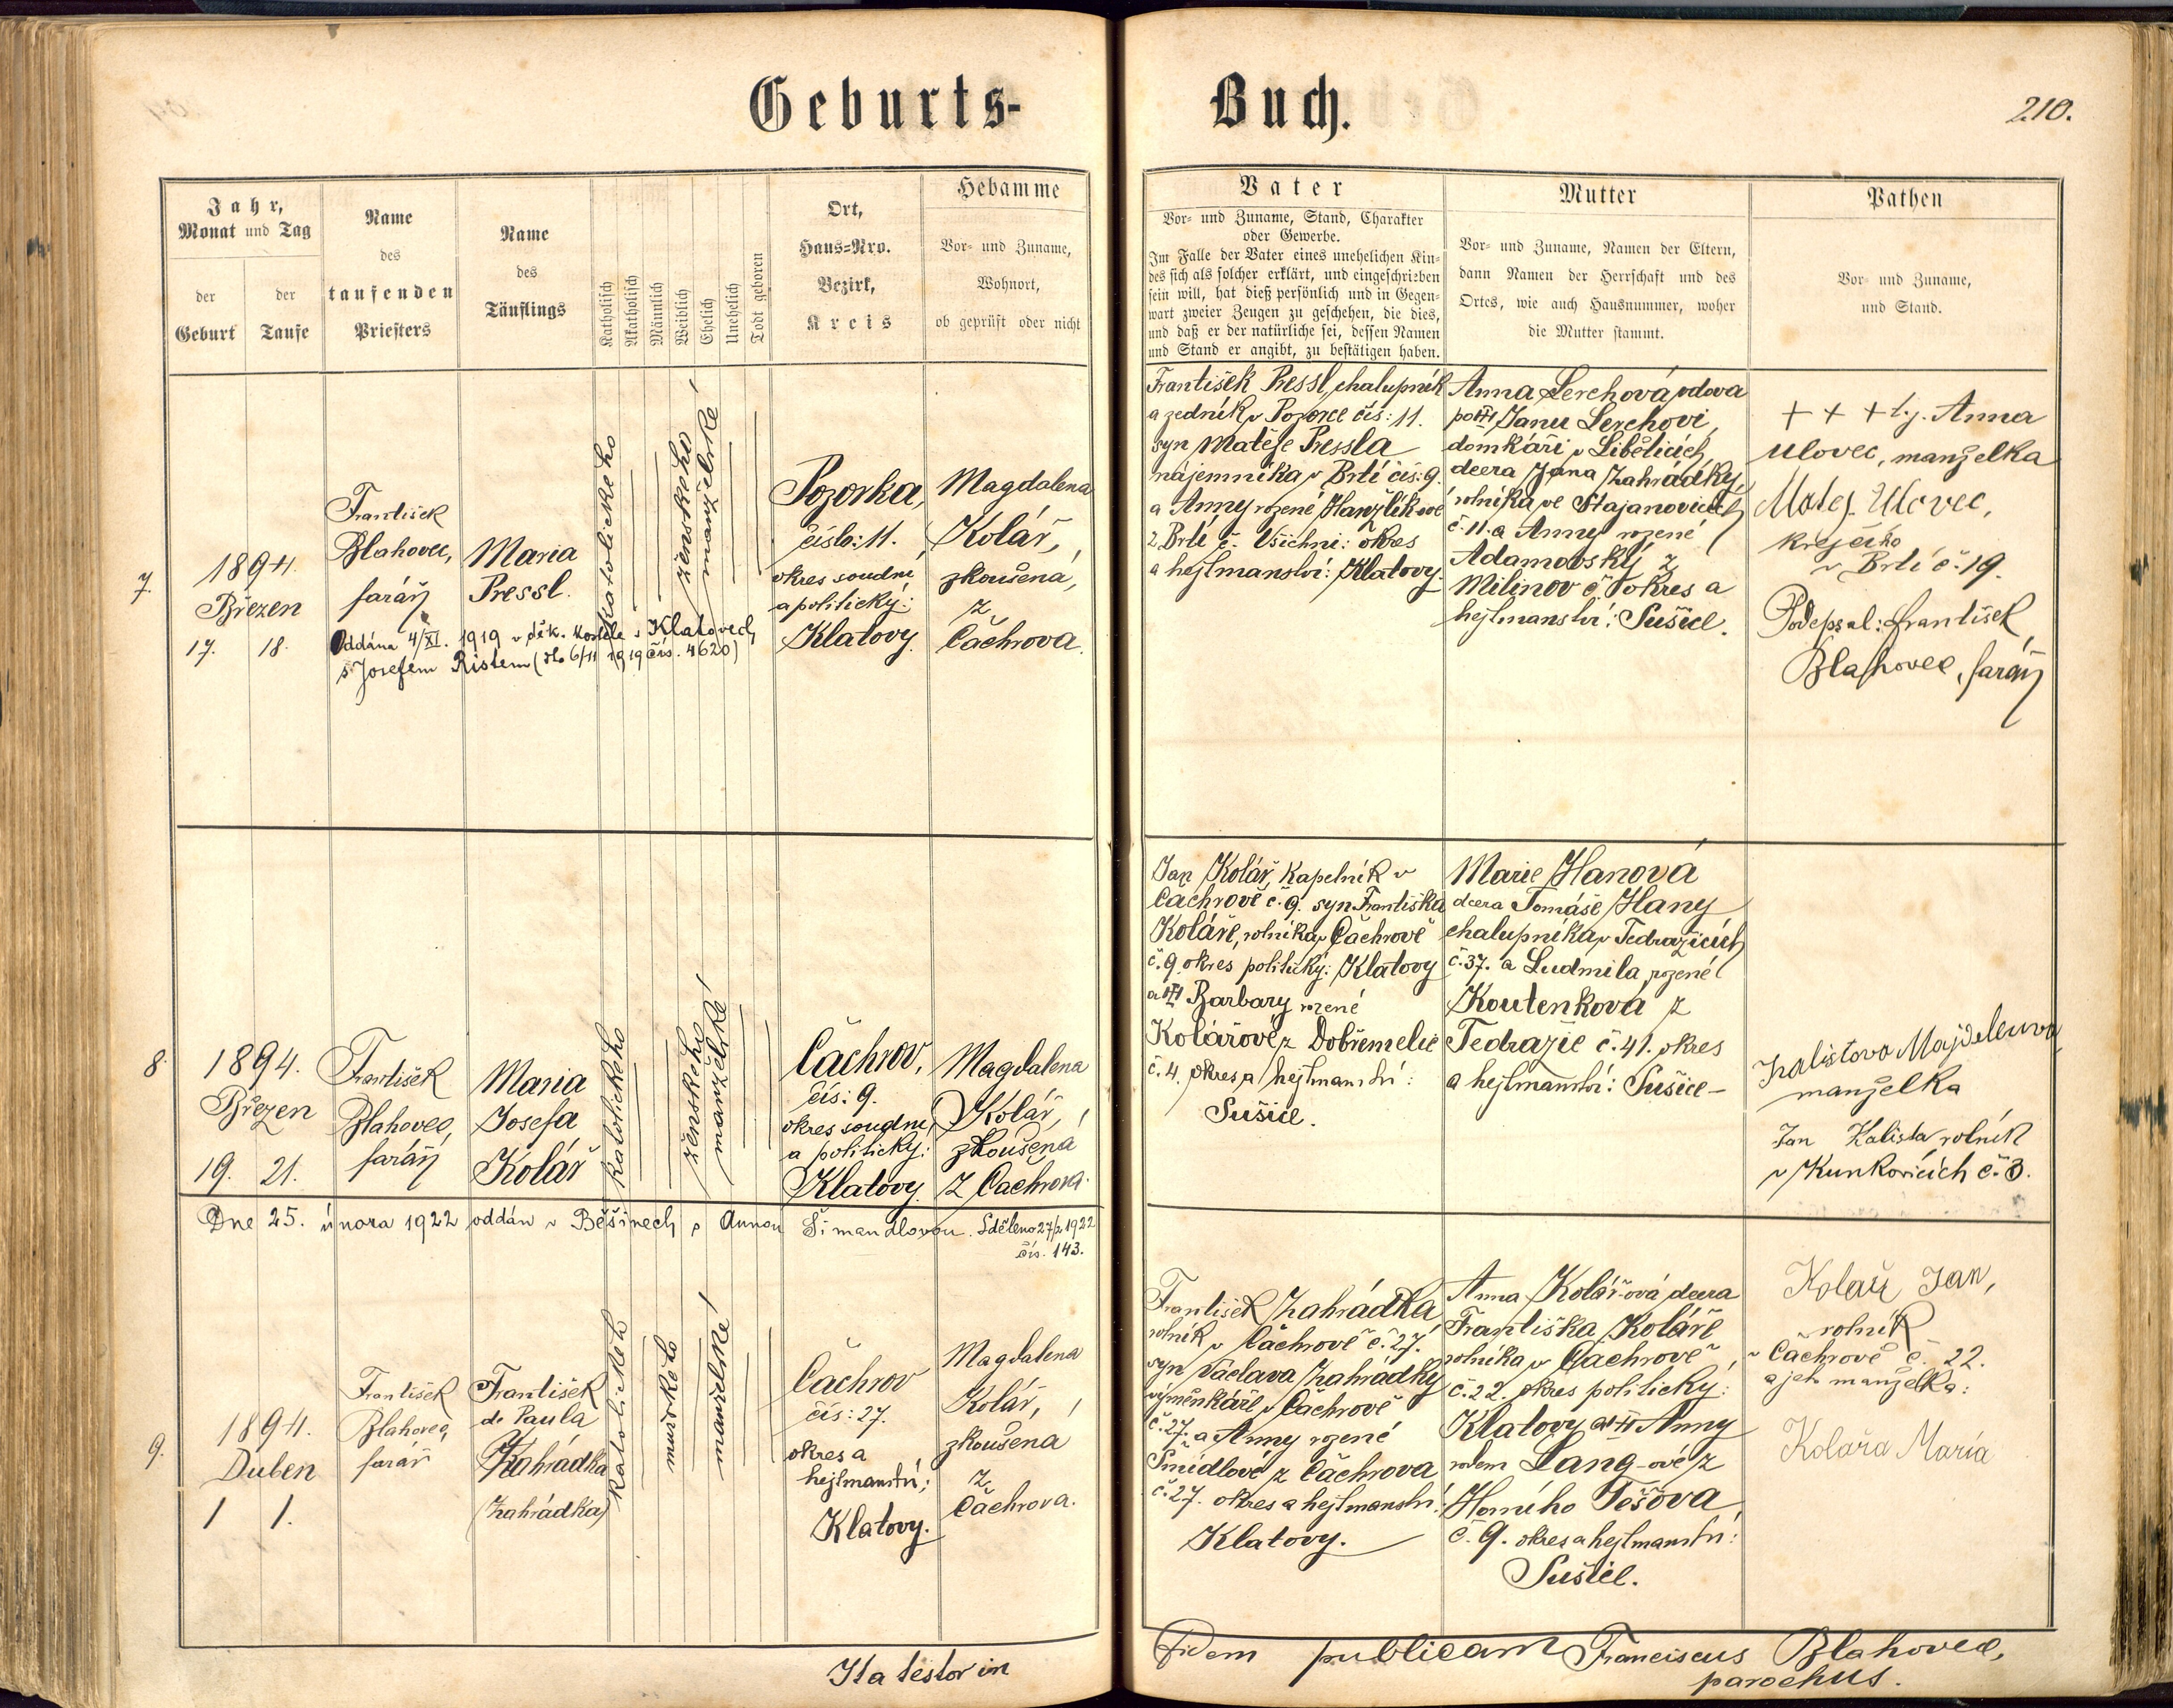 Geburts-
Buch.
210.
Jahr,
Monat und Tag
der
Geburt
der
Taufe
Name
des
taufenden
Priesters
Name
des
Täuflings
Katholisch
Akatholisch
Männlich
Weiblich
Ehelich
Unehelich
Todt geboren
Ort,
Haus=Nro.
Bezirk,
Kreis
Hebamme
Vor- und Zuname,
Wohnort,
ob geprüft oder nicht
Vater
Vor- und Zuname, Stand, Charakter
oder Gewerbe.
Im Falle der Vater eines unehelichen Kin=
des sich als solcher erklärt, und eingeschrieben
sein will, hat dieß persönlich und in Gegen=
wart zweier Zeugen zu geschehen, die dies,
und daß er der natürliche sei, dessen Namen
und Stand er angibt, zu bestätigen haben.
Mutter
Vor- und Zuname, Namen der Eltern,
dann Namen der Herrschaft und des
Ortes, wie auch Hausnummer, woher
die Mutter stammt.
Pathen
Vor- und Zuname,
und Stand.
7.
1894.
Březen
17. 18.
František
Blahovec,
farář
Maria
Pressl.
katolického
ženského
manželské
Pozorka,
číslo: 11.
okres soudní
a politický:
Klatovy.
Magdalena
Kolář,
zkoušená,
z
Čachrova.
Oddána 4/XI. 1919 v děk. kostele v Klatovech
s Josefem Ristem (dto 6/11 1919 čís. 4620)
František Pressl, chalupník
a zedník v Pozorce čís: 11.
syn Matěje Pressla
nájemníka v Brtí čís: 9.
a Anny rozené Hanzlíkové
z Brtí č. Všichni: okres
a hejtmanství: Klatovy.
Anna Lerchová, vdova
po Janu Lerchovi,
domkáři v Libětících,
dcera Jana Zahrádky,
rolníka ve Stajanovicích
č. 11. a Anny rozené
Adamovský z
Milínov č. 7 okres a
hejtmanství: Sušice.
+ + + t.j. Anna
Ulovec, manželka
Matěj. Ulovec,
krejčího
v Brtí č. 19.
Podepsal: František
Blahovec, farář
8.
1894.
Březen
19. 21.
František
Blahovec,
farář
Maria
Josefa
Kolář
katolického
ženského
manželské
Čachrov,
čís: 9.
okres soudní
a politický:
Klatovy.
Magdalena
Kolář,
zkoušená
z Čachrova.
Jan Kolář, kapelník v
Čachrově č. 9. syn Františka
Koláře, rolníka v Čachrově
č. 9. okres politický: Klatovy
a Barbary rozené
Kolářové z Dobřemelic
č. 4. okres a hejtmanství:
Sušice.
Marie Hanová
dcera Tomáše Hany
chalupníka v Tedražicích
č. 37. a Ludmila rozené
Koutenkova z
Tedražic č. 41. okres
a hejtmanství: Sušice -
Kalistova Majdelena
manželka
Jan Kalista rolník
v Kunkovicích č. 3.
Dne 25. února 1922 oddán v Běšinech s Annou Šimandlovou. Sděleno 27/2 1922
čís. 143.
9.
1894.
Duben
1 1.
František
Blahovec,
farář
František
de Paula
Zahrádka
(Zahrádka)
katolického
mužského
manželské
Čachrov
čís: 27.
okres a
hejtmanství:
Klatovy.
Magdalena
Kolář,
zkoušena
z
Čachrova.
František Zahrádka
rolník v Čachrově č. 27.
syn Václava Zahrádky
výměnkáře v Čachrově
č. 27. a Anny rozené
Šmídlové z Čachrova
č. 27. okres a hejtmanství:
Klatovy.
Anna Kolářová dcera
Františka Koláře
rolníka v Čachrově
č. 22. okres politický:
Klatovy a Anny
rodem Lang-ové z
Horního Těšova
č. 9. okres a hejtmanství:
Sušice.
Kolař Jan,
rolník
v Čachrově č. 22.
a jeho manželka:
Kolařa Maria
Ita testor in
Fidem publicam Franciscus Blahovec,
parochus.